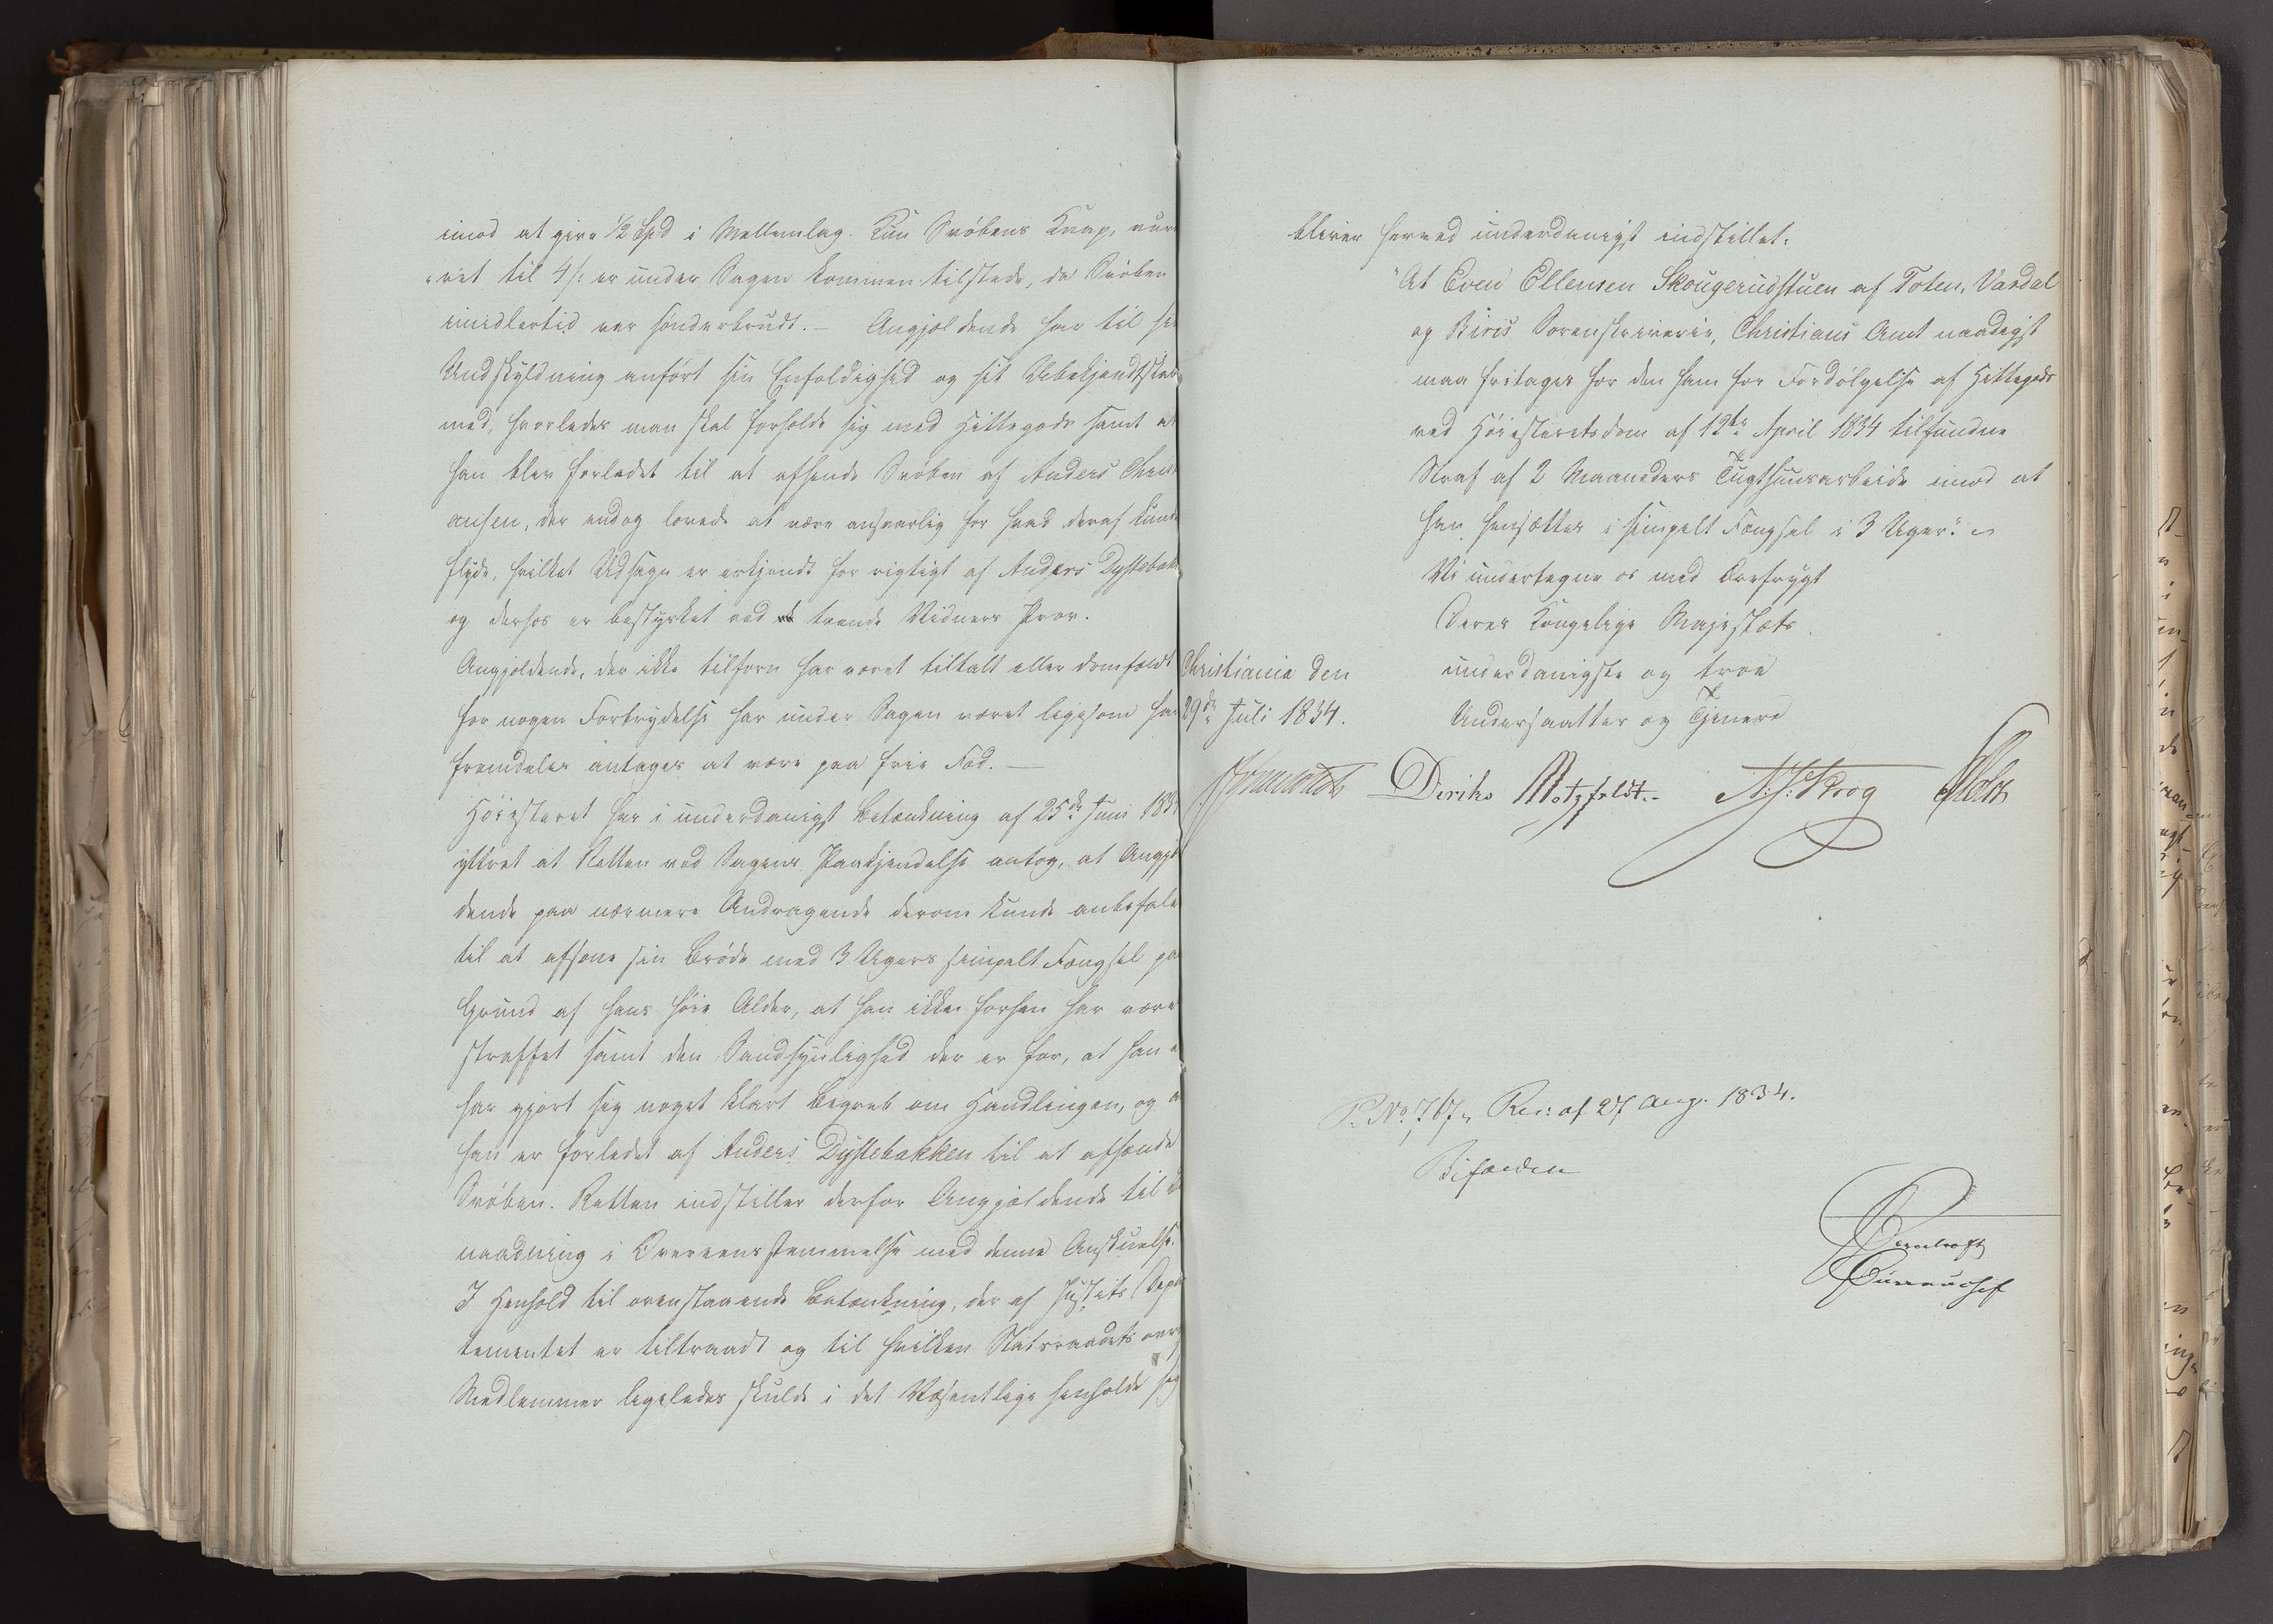 imod at give ½ Spd i Mellemlag. Kun Svøbens Knap, vur
"ret til 4 /: er under Sagen kommen tilstede, da Svøben
imidlertid var sønderbrudt. — Angjældende har til sin
Undskyldning anført sin Enfoldighed og sit Ubekjendtskab
med, hvorledes man skal forholde sig med Hittegods samt at
han blev forledet til at afhende Svøben af Anders Christi
ansen, der endog lovede at være ansvarlig for hvad deraf kunde
flyde, hvilket Udsagn er erkjendt for rigtigt af Anders Dystebak
og derhos er bestyrket ved trende Vidners Prov.
Angjældende, der ikke tilforn har været tiltalt eller domfældt
for nogen Forbrydelse har under Sagen været ligesom han
fremdeles antages at være paa frie Fod. —
Høiesteret har i underdanigst Betænkning af 25de Juni 1834
yttret at Retten ved Sagens Paakjendelse antog, at Angjæl
dende paa nærmere Andragende derom kunde anbefales
til at afsone sin Brøde med 3 Ugers simpelt Fængsel paa
Grund af hans høie Alder, at han ikke forhen har været
straffet samt den Sandsynlighed der er for, at han ei
har gjort sig noget klart Begreb om Handlingen, og at
han er forledet af Anders Dystebakken til at afhænde
Svøben. Retten indstiller derfor Angjældende til Be
naadning i Overeensstemmelse med denne Anskuelse.
I Henhold til ovenstaaende Betænkning, der af Justits Depar
tementet er tiltraadt og til hvilken Statsraadets øvrige
Medlemmer ligeledes skulde i det Væsentlige henholde sig
bliver herved underdanigst indstillet:
"At Even Ellensen Skougerudstuen af Toten, Vardal
og Biris Sorenskriverie, Christians Amt naadigst
maa fritages for den ham for Fordølgelse af Hittegods
ved Høiesteretsdom af 12te April 1834 tilfundne
Straf af 2 Maaneders Tugthuusarbeide imod at
han hensættes i simpelt Fængsel i 3 Uger."
Vi undertegne os med Ærefrygt
Deres Kongelige Majestæts
Christiania den underdanigste og troe
29de Juli 1834. Undersaatter og Tjenere
Diriks Motzfeldt. N. J. Krog Holst
P. No. 767. Res: af 27 Aug. 1834.
Bifalden
Bureauchef